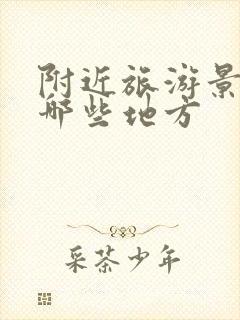 附近旅游景
哪些地方
采茶少年